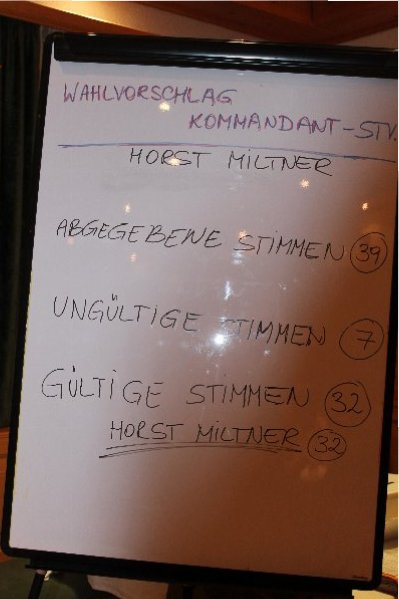 WAHLVORSCHLAG
KOMMANDANT-STV.
HORST MILTNER
ABGEGEBENE STIMMEN 39
UNGÜLTIGE STIMMEN 7
GÜLTIGE STIMMEN 32
HORST MILTNER 32